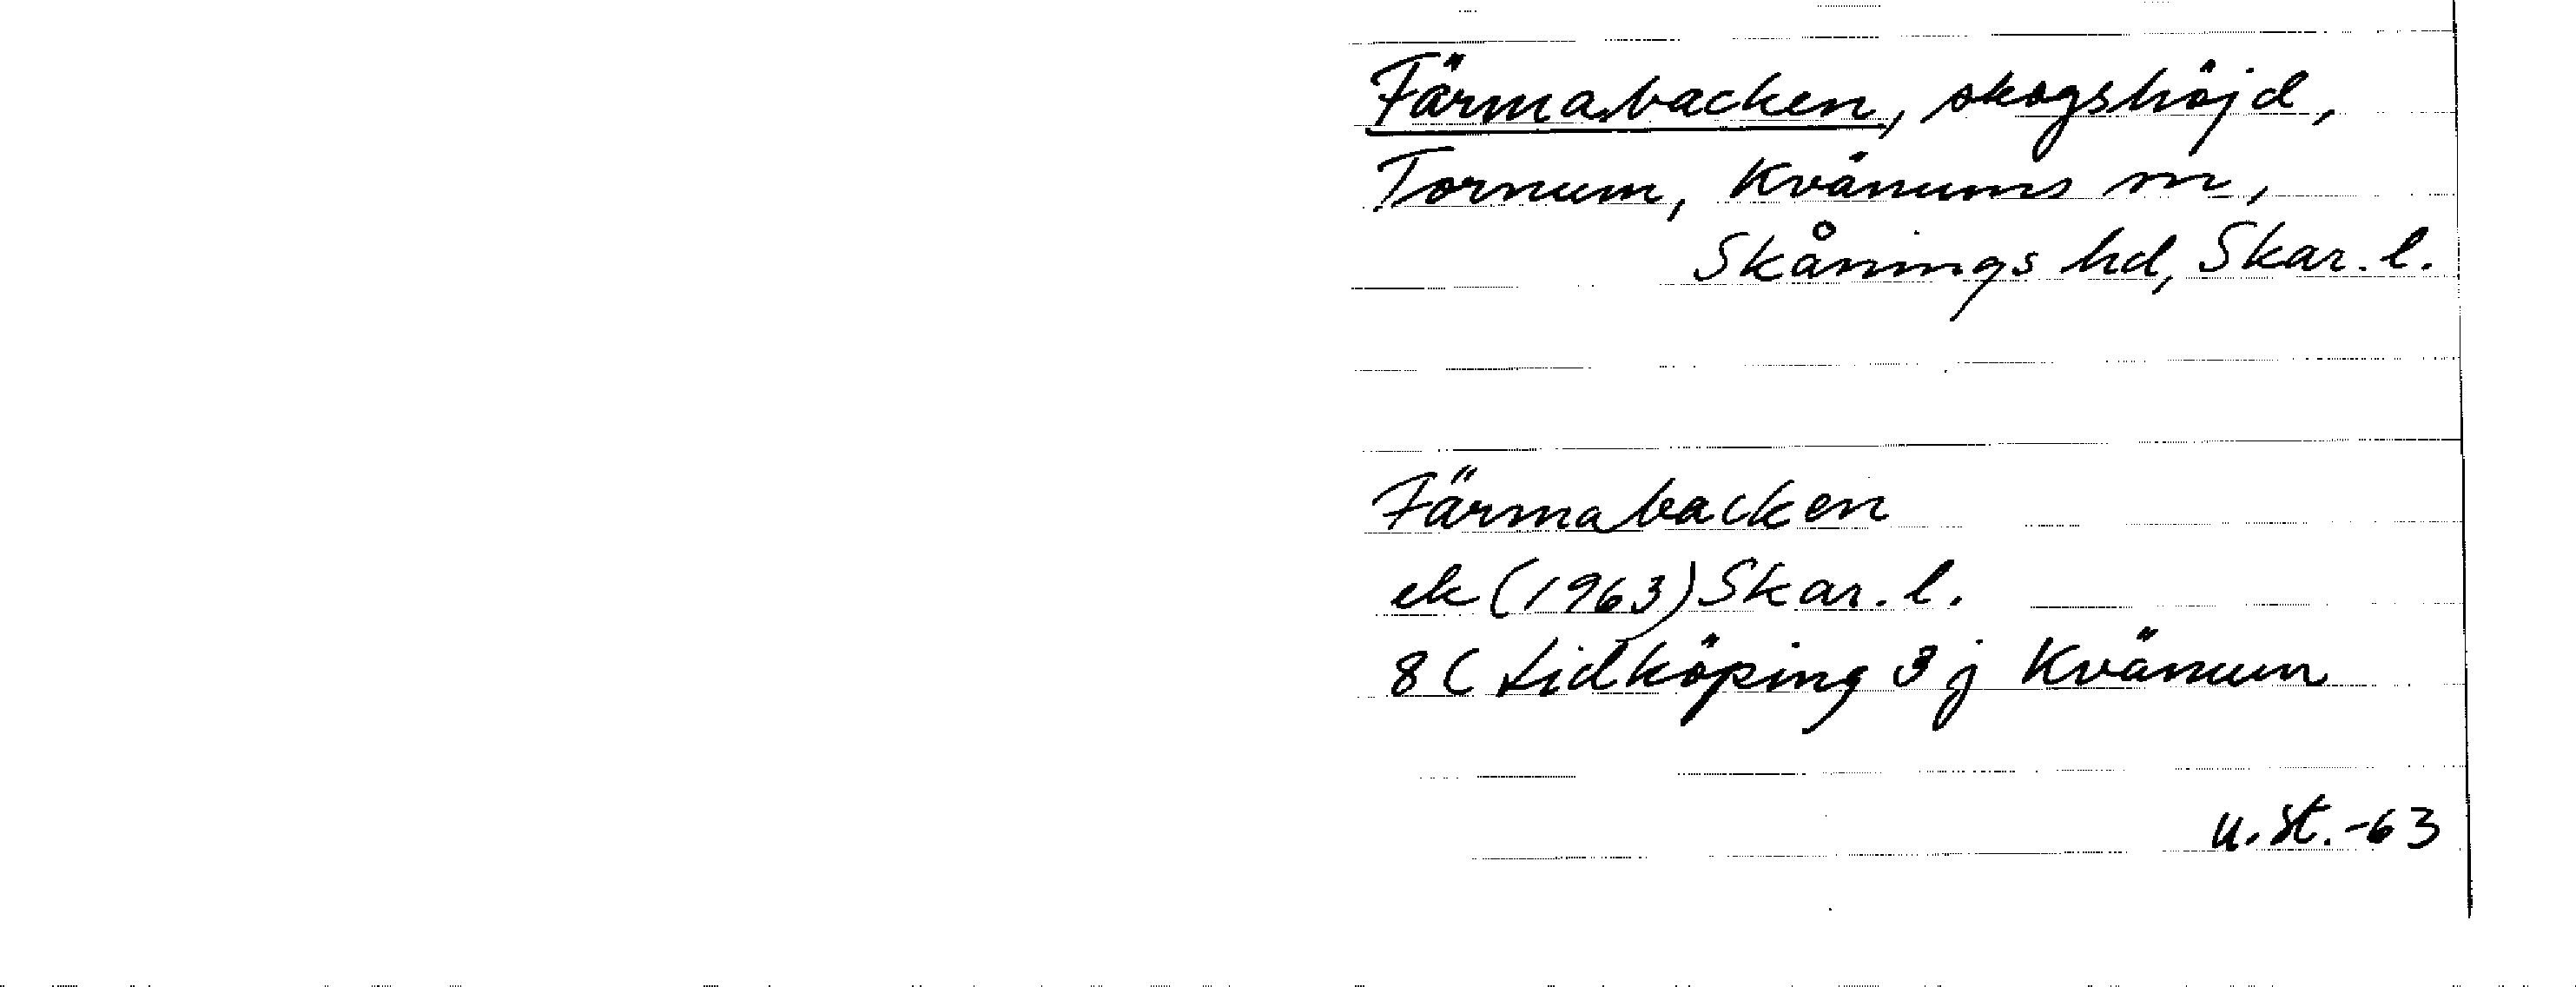 Färmabacken, skogshöjd,
Tornum, Kvänums sn,
Skånings hd, Skar. l.
Färmabacken
ek (1963) Skar. l.
8C Lidköping 3j Kvänum
U. St. -63